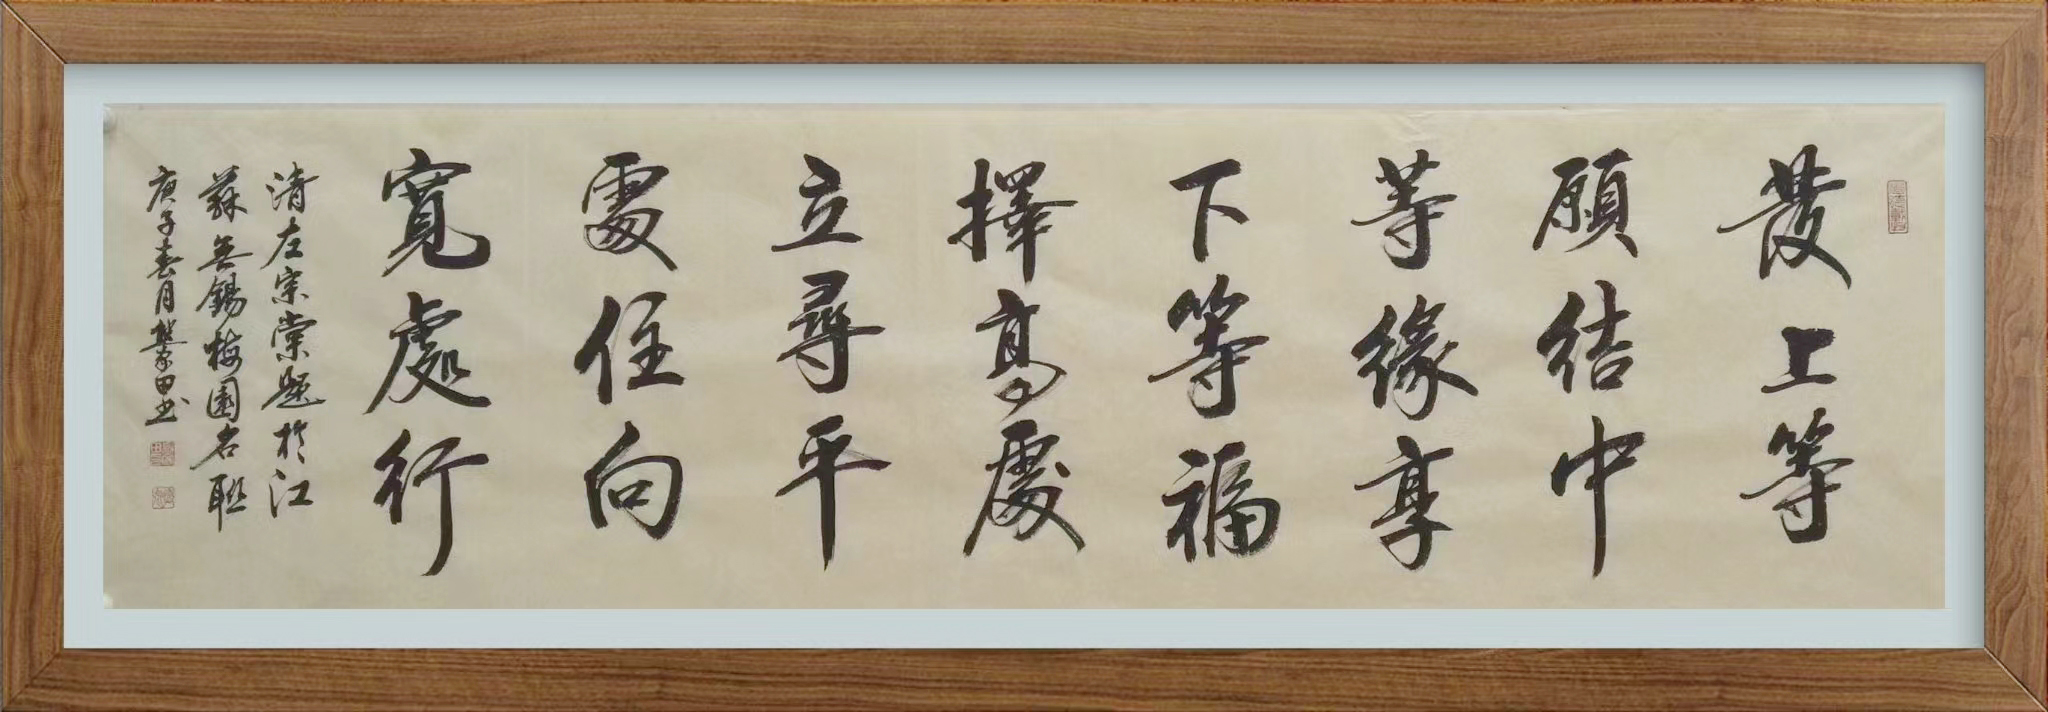 發上等
願結中
等緣享
下等福
擇高處
立尋平
處住向
寬處行
清左宗棠題於江
蘇無錫梅園名聯
庚子春月樊家田书